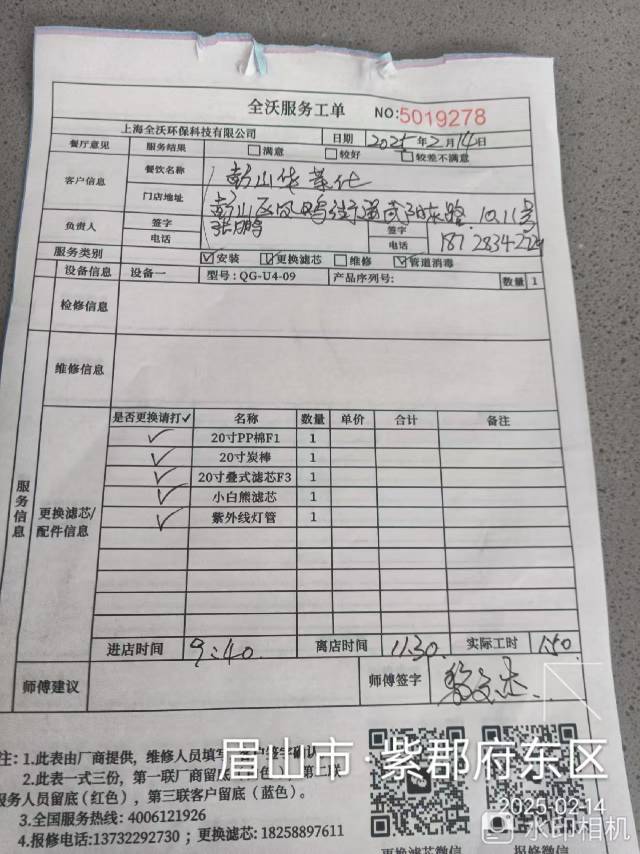 全沃服务工单 NO:5019278
上海全沃环保科技有限公司 日期 2025年2月14日
餐厅意见 服务结果 满意 较好 较差不满意
客户信息 餐饮名称 彭山华莱仕
门店地址 彭山区凤鸣街道武阳东路 10.11号
负责人 签字 张鹏 签字
电话 电话
服务类别 安装 更换滤芯 维修 管道消毒
设备信息 设备一 型号:QG-U4-09 产品序列号: 数量 1
检修信息
维修信息
服务信息
更换滤芯/配件信息
是否更换请打✓ 名称 数量 单价 合计 备注
✓ 20寸PP棉F1 1
✓ 20寸炭棒 1
✓ 20寸叠式滤芯F3 1
✓ 小白熊滤芯 1
✓ 紫外线灯管 1
进店时间 9:40 离店时间 1130 实际工时 150
师傅建议 师傅签字
注: 1.此表由厂商提供, 维修人员填写, 客户签字确认
2.此表一式三份, 第一联厂商留底
服务人员留底(红色), 第三联客户留底(蓝色)。
3.全国服务热线: 4006121926
4.报修电话:13732292730; 更换滤芯:18258897611
更换滤芯微信 报修微信
眉山市·紫郡府东区
2025-02-14
水印相机